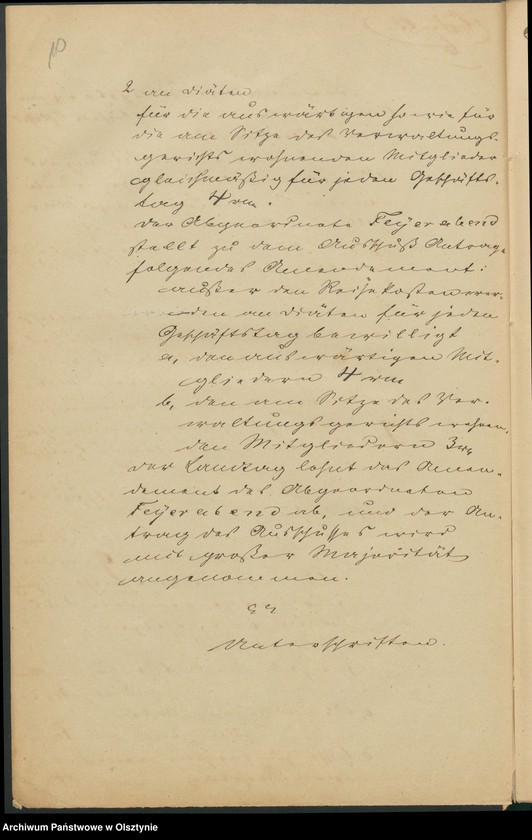 10
2 an Diäten
für die auswärtigen sowie für
die am Sitze des Verwaltungs-
gerichts wohnenden Mitglieder
gleichmäßig für jeden Geschäfts-
tag 4 rm.
Der Abgeordnete Feyerabend
stellt zu dem Ausschuß Antrage
folgendes Amendement:
außer den Reisekosten wer-
den an Diäten für jeden
Geschäftstag bewilligt
a, den auswärtigen Mit-
gliedern 4 rm
b, den am Sitze des Ver-
waltungsgerichts wohnen-
den Mitgliedern 3 rm
Der Landtag lehnt das Amen-
dement des Abgeordneten
Feyerabend ab, und der An-
trag des Ausschusses wird
mit großer Majorität
angenommen.
Unterschriften.
Archiwum Państwowe w Olsztynie